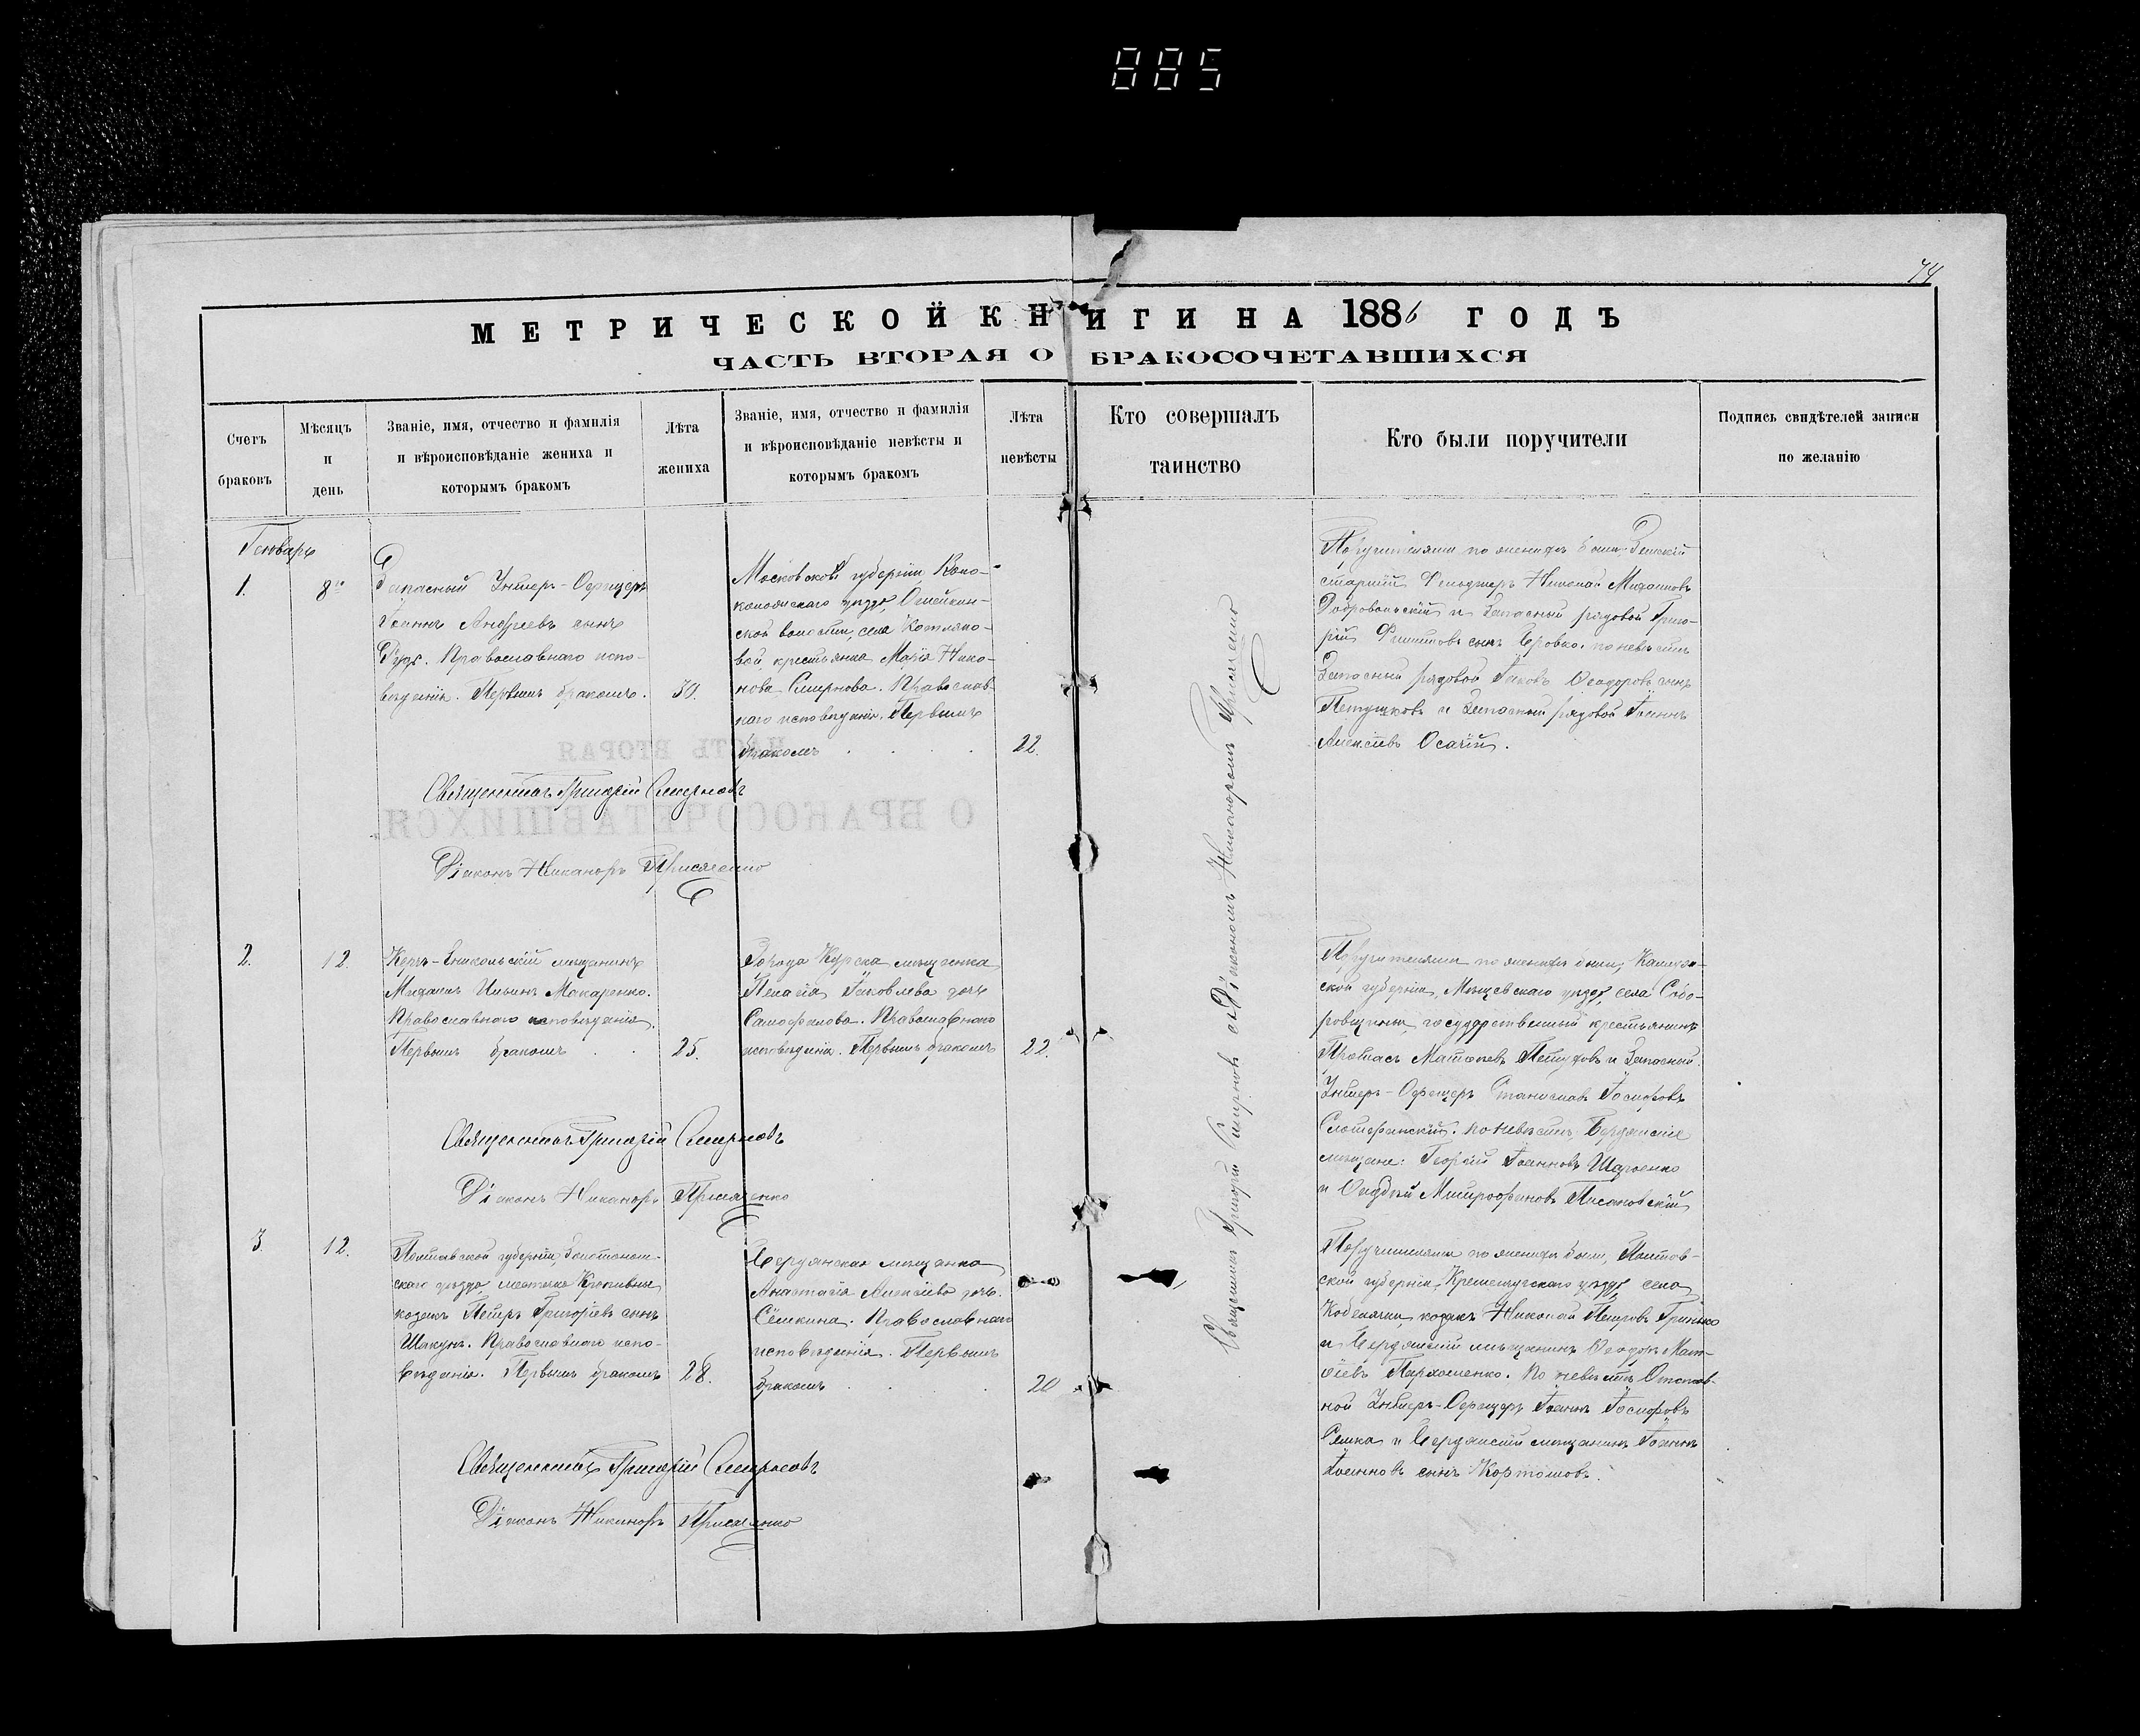 885
74
МЕТРИЧЕСКОЙ КНИГИ НА 1886 ГОДЪ
ЧАСТЬ ВТОРАЯ О БРАКОСОЧЕТАВШИХСЯ
Счетъ
браковъ
Мѣсяцъ
и
день
Званіе, имя, отчество и фамилія
и вѣроисповѣданіе жениха и
которымъ бракомъ
Лѣта
жениха
Званіе, имя, отчество и фамилія
и вѣроисповѣданіе невѣсты и
которымъ бракомъ
Лѣта
невѣсты
Кто совершалъ
таинство
Кто были поручители
Подпись свидѣтелей записи
по желанію
Генварь
1.
8го
Запасный Унтеръ-Офицеръ
Іоаннъ Андреевъ сынъ
Православнаго испо-
вѣданія. Первымъ бракомъ.
30.
Московской губерніи,
уѣзда,
ской волости, села
вой, крестьянка Марія Нико-
нова Смирнова. Православ-
наго исповѣданія. Первымъ
бракомъ
22.
Поручителями по женихѣ были: Земскій
старшій Фельдшеръ Николай Михайловъ
Добровольскій и Запасный рядовой Григо-
рій Филиповъ сынъ по невѣстѣ
Запасный рядовой Іаковъ Ѳеодоровъ сынъ
Петушковъ и Запасный рядовой Іоаннъ
Алексѣевъ Осачій.
Священникъ Григорій Смирновъ
Діаконъ Никаноръ Присяженко
Священникъ Григорій Смирновъ съ Діакономъ Никаноромъ Присяженко
2.
12.
Керчь-Еникольскій мѣщанинъ
Михаилъ Ильинъ Макаренко.
Православнаго исповѣданія.
Первымъ бракомъ
25.
Города Курска мѣщанка
Пелагія Іаковлева дочь
Самофалова. Православнаго
исповѣданія. Первымъ бракомъ
22.
Поручителями по женихѣ были, Калуж-
ской губерніи, Мещевскаго уѣзда, села
государственный крестьянинъ
Матѳеевъ Петуховъ и Запасный
Унтеръ-Офицеръ Станиславъ Іосифовъ
по невѣстѣ Бердянскіе
мѣщане: Георгій Іоанновъ
и Андрей Митрофановъ Писановскій
Священникъ Григорій Смирновъ
Діаконъ Никаноръ Присяженко
3.
12.
Полтавской губерніи, Золотонош-
скаго уѣзда, местечка Кропивны
козакъ Петръ Григорьевъ сынъ
Шакунъ. Православнаго испо-
вѣданія. Первымъ бракомъ
28.
Бердянская мѣщанка
Анастасія Алексѣева дочь
Сёмкина. Православнаго
исповѣданія. Первымъ
бракомъ
20
Поручителями по женихѣ были, Полтав-
ской губерніи, Кременчугскаго уѣзда, села
козакъ Николай Петровъ Гринько
и Бердянскій мѣщанинъ Ѳеодоръ Мат-
ѳеевъ Пархоменко. По невѣстѣ Отстав-
ной Унтеръ-Офицеръ Іоаннъ Іосифовъ
и Бердянскій мѣщанинъ Іоаннъ
Іоанновъ сынъ
Священникъ Григорій Смирновъ
Діаконъ Никаноръ Присяженко